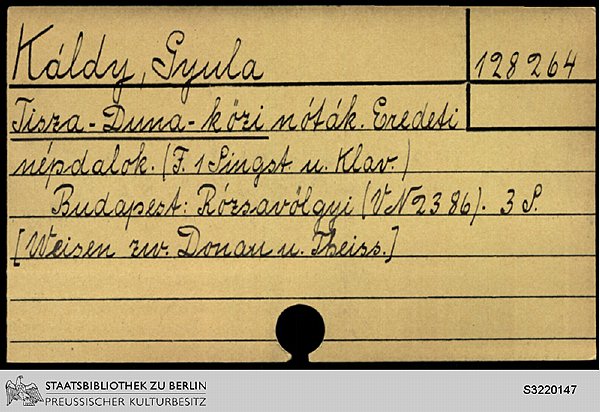 Káldy, Gyula
128 264
Tisza-Duna-közi nóták. Eredeti
népdalok. (F. 1 Singst. u. Klav.)
Budapest: Rózsavölgyi (VN 2386). 3 S.
[Weisen zw. Donau u. Theiss.]
STAATSBIBLIOTHEK ZU BERLIN
PREUSSISCHER KULTURBESITZ
S3220147